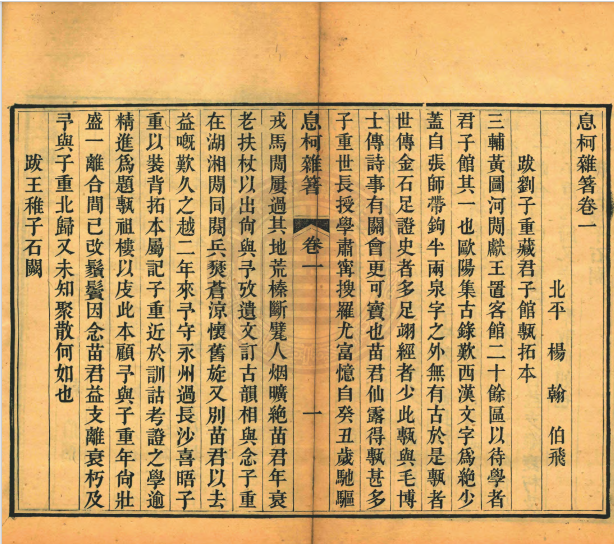 息柯雜箸卷一
北平 楊 翰 伯飛
跋劉子重藏君子館甎拓本
三輔黃圖河閒獻王置客館二十餘區以待學者
君子館其一也歐陽集古錄歎西漢文字爲絶少
蓋自張師帶鉤半兩泉字之外無有古於是甎者
世傳金石足證史者多足翊經者少此甎與毛博
士傳詩事有關會更可寶也苗君仙露得甎甚多
子重世長授學肅甯搜羅尤富憶自癸丑歲馳驅
息柯雜箸 卷一 一
戎馬閒屢過其地荒榛斷甓人烟曠絶苗君年衰
老扶杖以出尙與予攷遺文訂古韻相與念子重
在湖湘閒同閱兵燹蒼涼懷舊旋又別苗君以去
益嘅歎久之越二年來予守永州過長沙喜晤子
重以裝背拓本屬記子重近於訓詁考證之學逾
精進爲題甎祖樓以庋此本顧予與子重年尙壯
盛一離合間已改鬚鬢因念苗君益支離衰朽及
予與子重北歸又未知聚散何如也
跋王稚子石闕